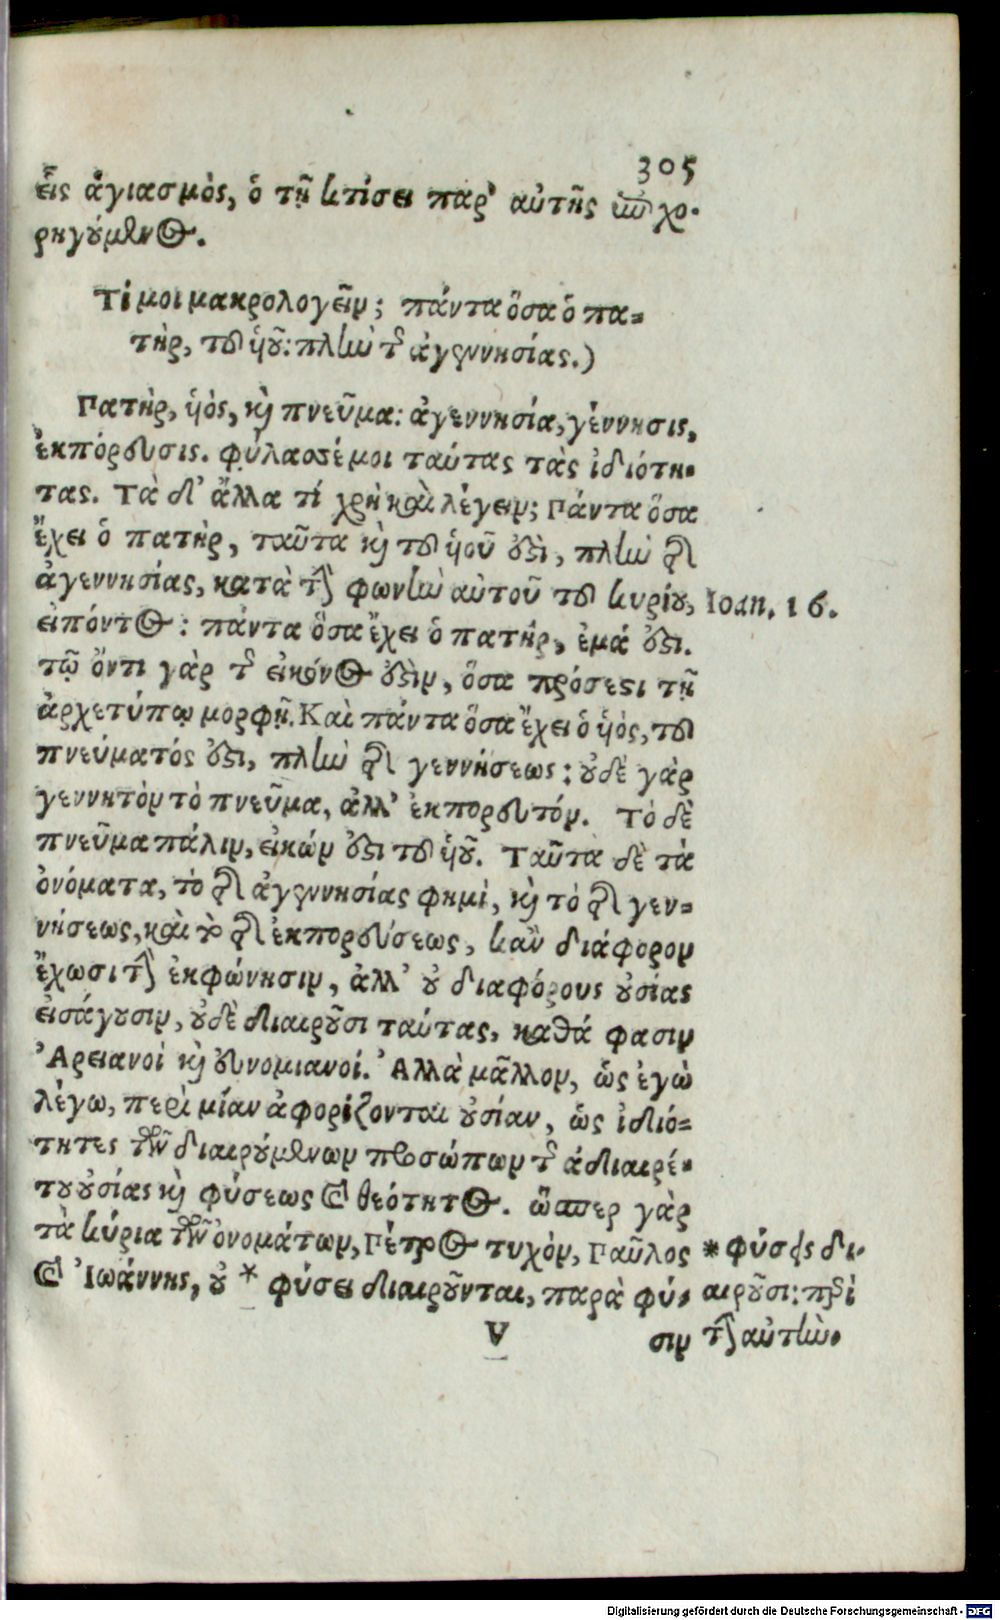 305
εἷς ἁγιασμὸς, ὁ τῇ κτίσει παρ' αὐτῆς ἐπιχο-
ρηγούμενος.
Τί μοι μακρολογεῖν; πάντα ὅσα ὁ πα-
τὴρ, τοῦ ὑιοῦ: πλὴν τῆς ἀγεννησίας.)
Πατὴρ, ὑιὸς, καὶ πνεῦμα: ἀγεννησία, γέννησις,
ἐκπόρευσις. φύλασσέ μοι ταύτας τὰς ἰδιότη-
τας. Τὰ δ' ἄλλα τί χρὴ καὶ λέγειν; Πάντα ὅσα
ἔχει ὁ πατὴρ, ταῦτα καὶ τοῦ ὑιοῦ ἐστὶ, πλὴν τῆς
ἀγεννησίας, κατὰ τὴν φωνὴν αὐτοῦ τοῦ κυρίου, Ioan. 16.
εἰπόντος: πάντα ὅσα ἔχει ὁ πατὴρ, ἐμά ἐστι.
τῷ ὄντι γὰρ τῆς εἰκόνος ἐστὶν, ὅσα πρόσεστι τῇ
ἀρχετύπῳ μορφῇ. Καὶ πάντα ὅσα ἔχει ὁ ὑιὸς, τοῦ
πνεύματός ἐστι, πλὴν τῆς γεννήσεως: οὐδὲ γὰρ
γεννητὸν τὸ πνεῦμα, ἀλλ' ἐκπορευτόν. Τὸ δὲ
πνεῦμα πάλιν, εἰκών ἐστι τοῦ ὑιοῦ. Ταῦτα δὲ τὰ
ὀνόματα, τὸ τῆς ἀγεννησίας φημὶ, καὶ τὸ τῆς γεν-
νήσεως, καὶ τὸ τῆς ἐκπορεύσεως, κἂν διάφορον
ἔχωσι τὴν ἐκφώνησιν, ἀλλ' οὐ διαφόρους οὐσίας
εἰσάγουσιν, οὐδὲ διαιροῦσι ταύτας, καθά φασιν
Ἀρειανοὶ καὶ Εὐνομιανοί. Ἀλλὰ μᾶλλον, ὡς ἐγὼ
λέγω, περὶ μίαν ἀφορίζονται οὐσίαν, ὡς ἰδιό-
τητες τῶν διαιρουμένων προσώπων τῆς ἀδιαιρέ-
του οὐσίας καὶ φύσεως καὶ θεότητος. ὥσπερ γὰρ
τὰ κύρια τῶν ὀνομάτων, Πέτρος τυχὸν, Παῦλος
καὶ Ἰωάννης, οὐ * φύσει διαιροῦνται, παρὰ φύ-
* φύσεις δι-
αιροῦσι: περὶ
τὴν αὐτὴν.
V
σιν
Digitalisierung gefördert durch die Deutsche Forschungsgemeinschaft - DFG